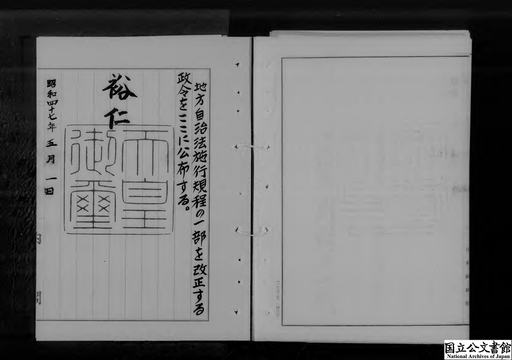 地方自治法施行規程の一部を改正する
政令をここに公布する。
裕仁
天皇御璽
昭和四十七年五月一日
内閣
国立公文書館
National Archives of Japan